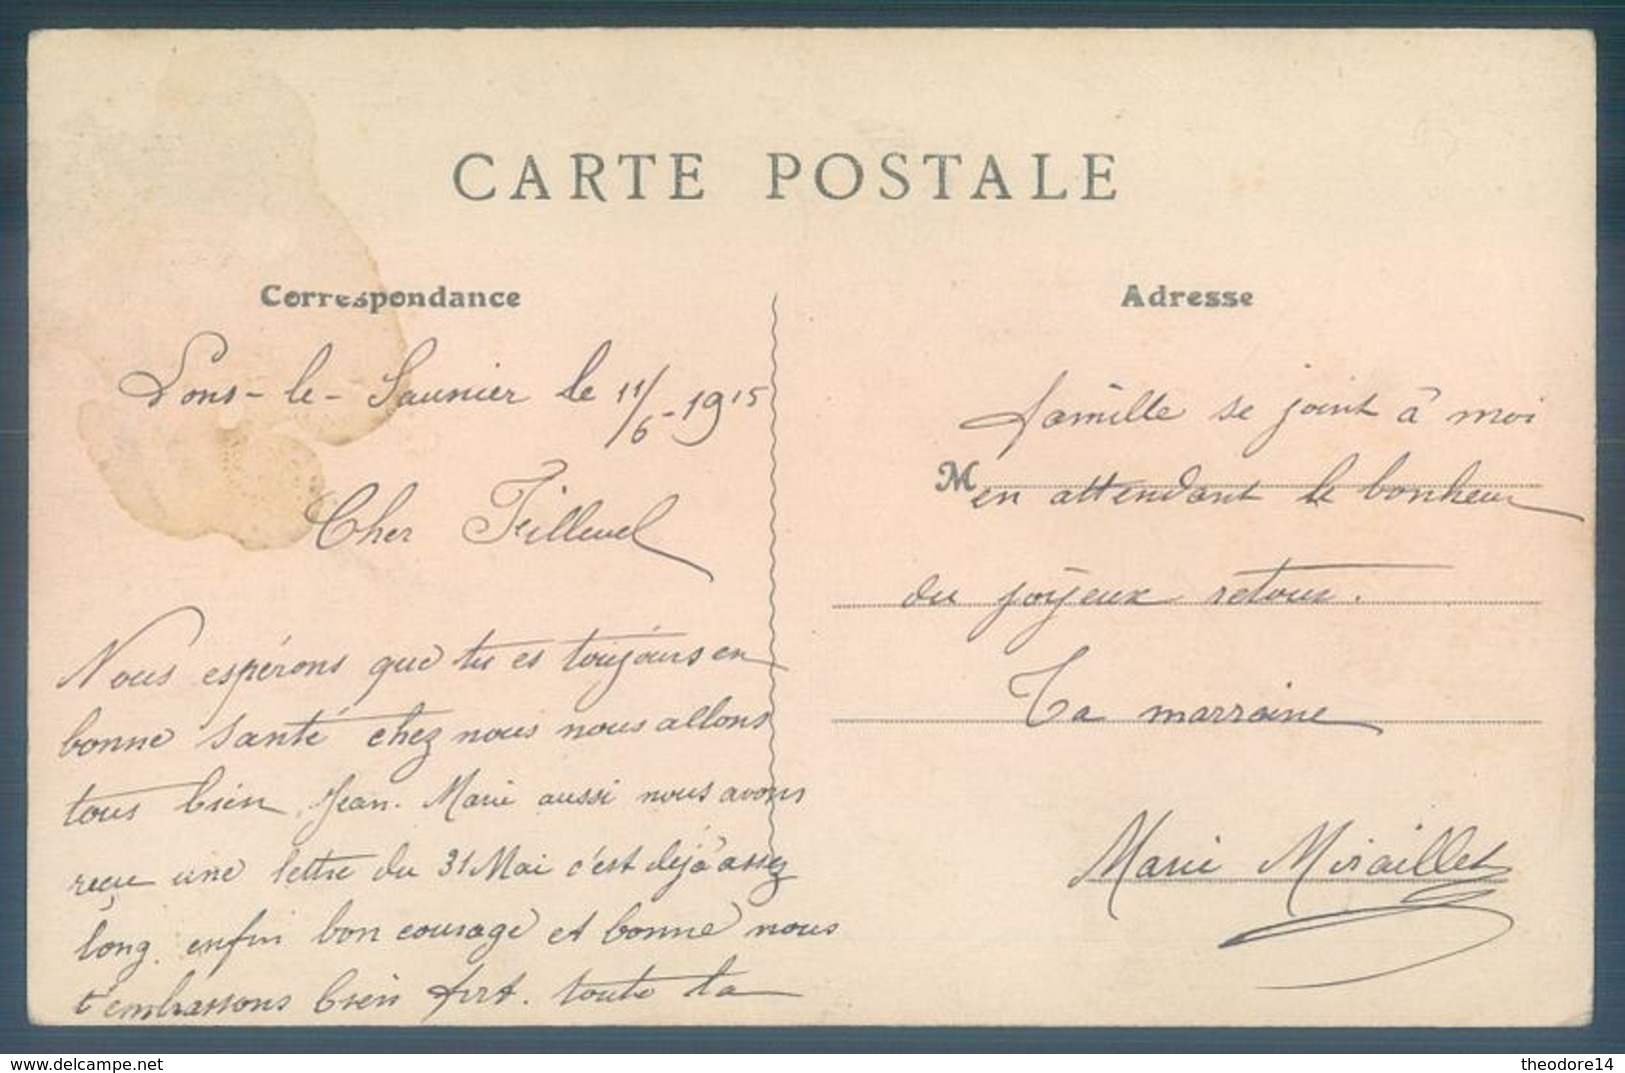 CARTE POSTALE
Correspondance
Lons-le-Saunier le 11/6-1915
Cher Filleuel
Nous espérons que tu es toujours en
bonne santé chez nous nous allons
tous bien, Jean-Marie aussi nous avons
reçu une lettre du 31 Mai c'est déjà assez
long. enfin bon courage et bonne nous
t'embrassons bien fort. toute la
Adresse
famille se joint à moi
M en attendant le bonheur
du joyeux retour.
Ta marraine
Marie Miraillet
theodore14
www.delcampe.net